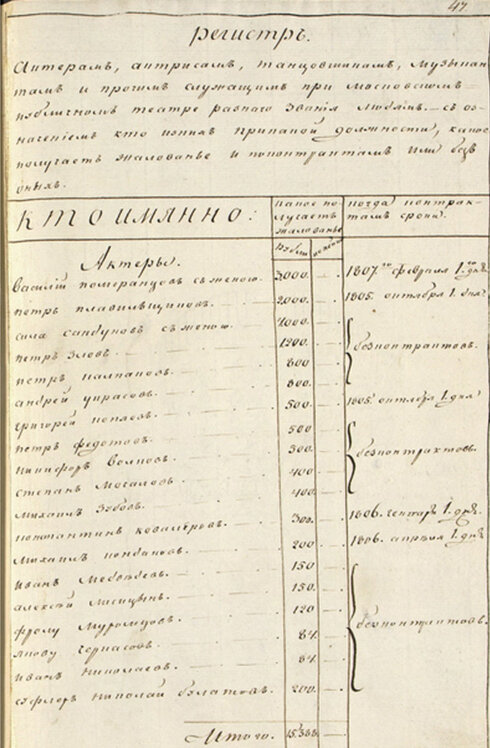 47
Регистръ.
Актерамъ, актрисамъ, танцовщикамъ, музыкан
тамъ и прочимъ служащимъ при московскомъ
публичномъ театре разнаго званія людямъ. съ оз
начениемъ кто изнихъ прикакой должности, какое
получаетъ жалованье и поконтрактамъ или безъ
оныхъ.
КТО ИМЯННО:
какое по
лучаетъ
жалованье
когда контрак
тамъ сроки.
рубли
Актеры.
василій померанцовъ съ женою. 3000. 1807го февраля 1го дня
петръ плавильщиковъ. 2000. 1805. октября 1. дня.
сила сандуновъ съ женою. 4000.
петръ зловъ. 1200.
петръ калпаковъ. 600
безконтрактовъ.
андрей украсовъ. 600.
григорей поповъ. 500. 1805. октября 1. дня
петръ федотовъ. 500
никифоръ волковъ. 300.
степанъ мочаловъ. 400
михаилъ зубовъ. 400.
безконтрактовъ.
константинъ кавалеровъ. 300. 1806. генваря 1. дня.
михаилъ кондаковъ. 200. 1806. апреля 1. дня.
иванъ медведевъ. 150
алексей лисицынъ. 150.
фролу муромцовъ. 120
якову черкасовъ. 84.
иванъ николаевъ. 84.
суфлеръ николай булатовъ. 200.
безконтрактовъ.
Итого. 15388.